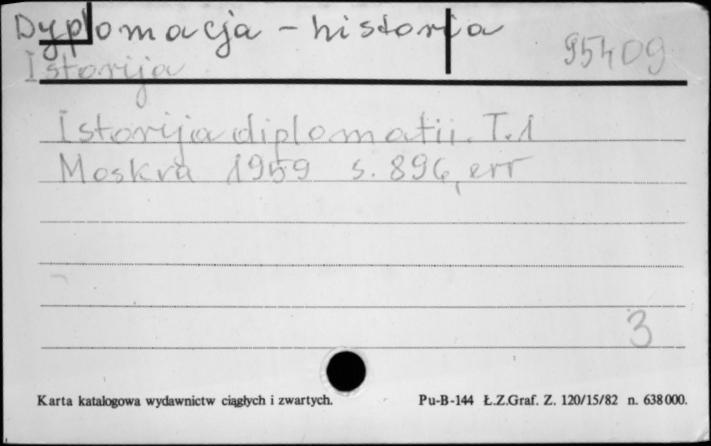 Dyplomacja - historia
95409
Istorija
Istorija diplomatii. T.1
Moskva 1959 s. 896, err
3
Karta katalogowa wydawnictw ciągłych i zwartych. Pu-B-144 Ł.Z.Graf. Z. 120/15/82 n. 638000.